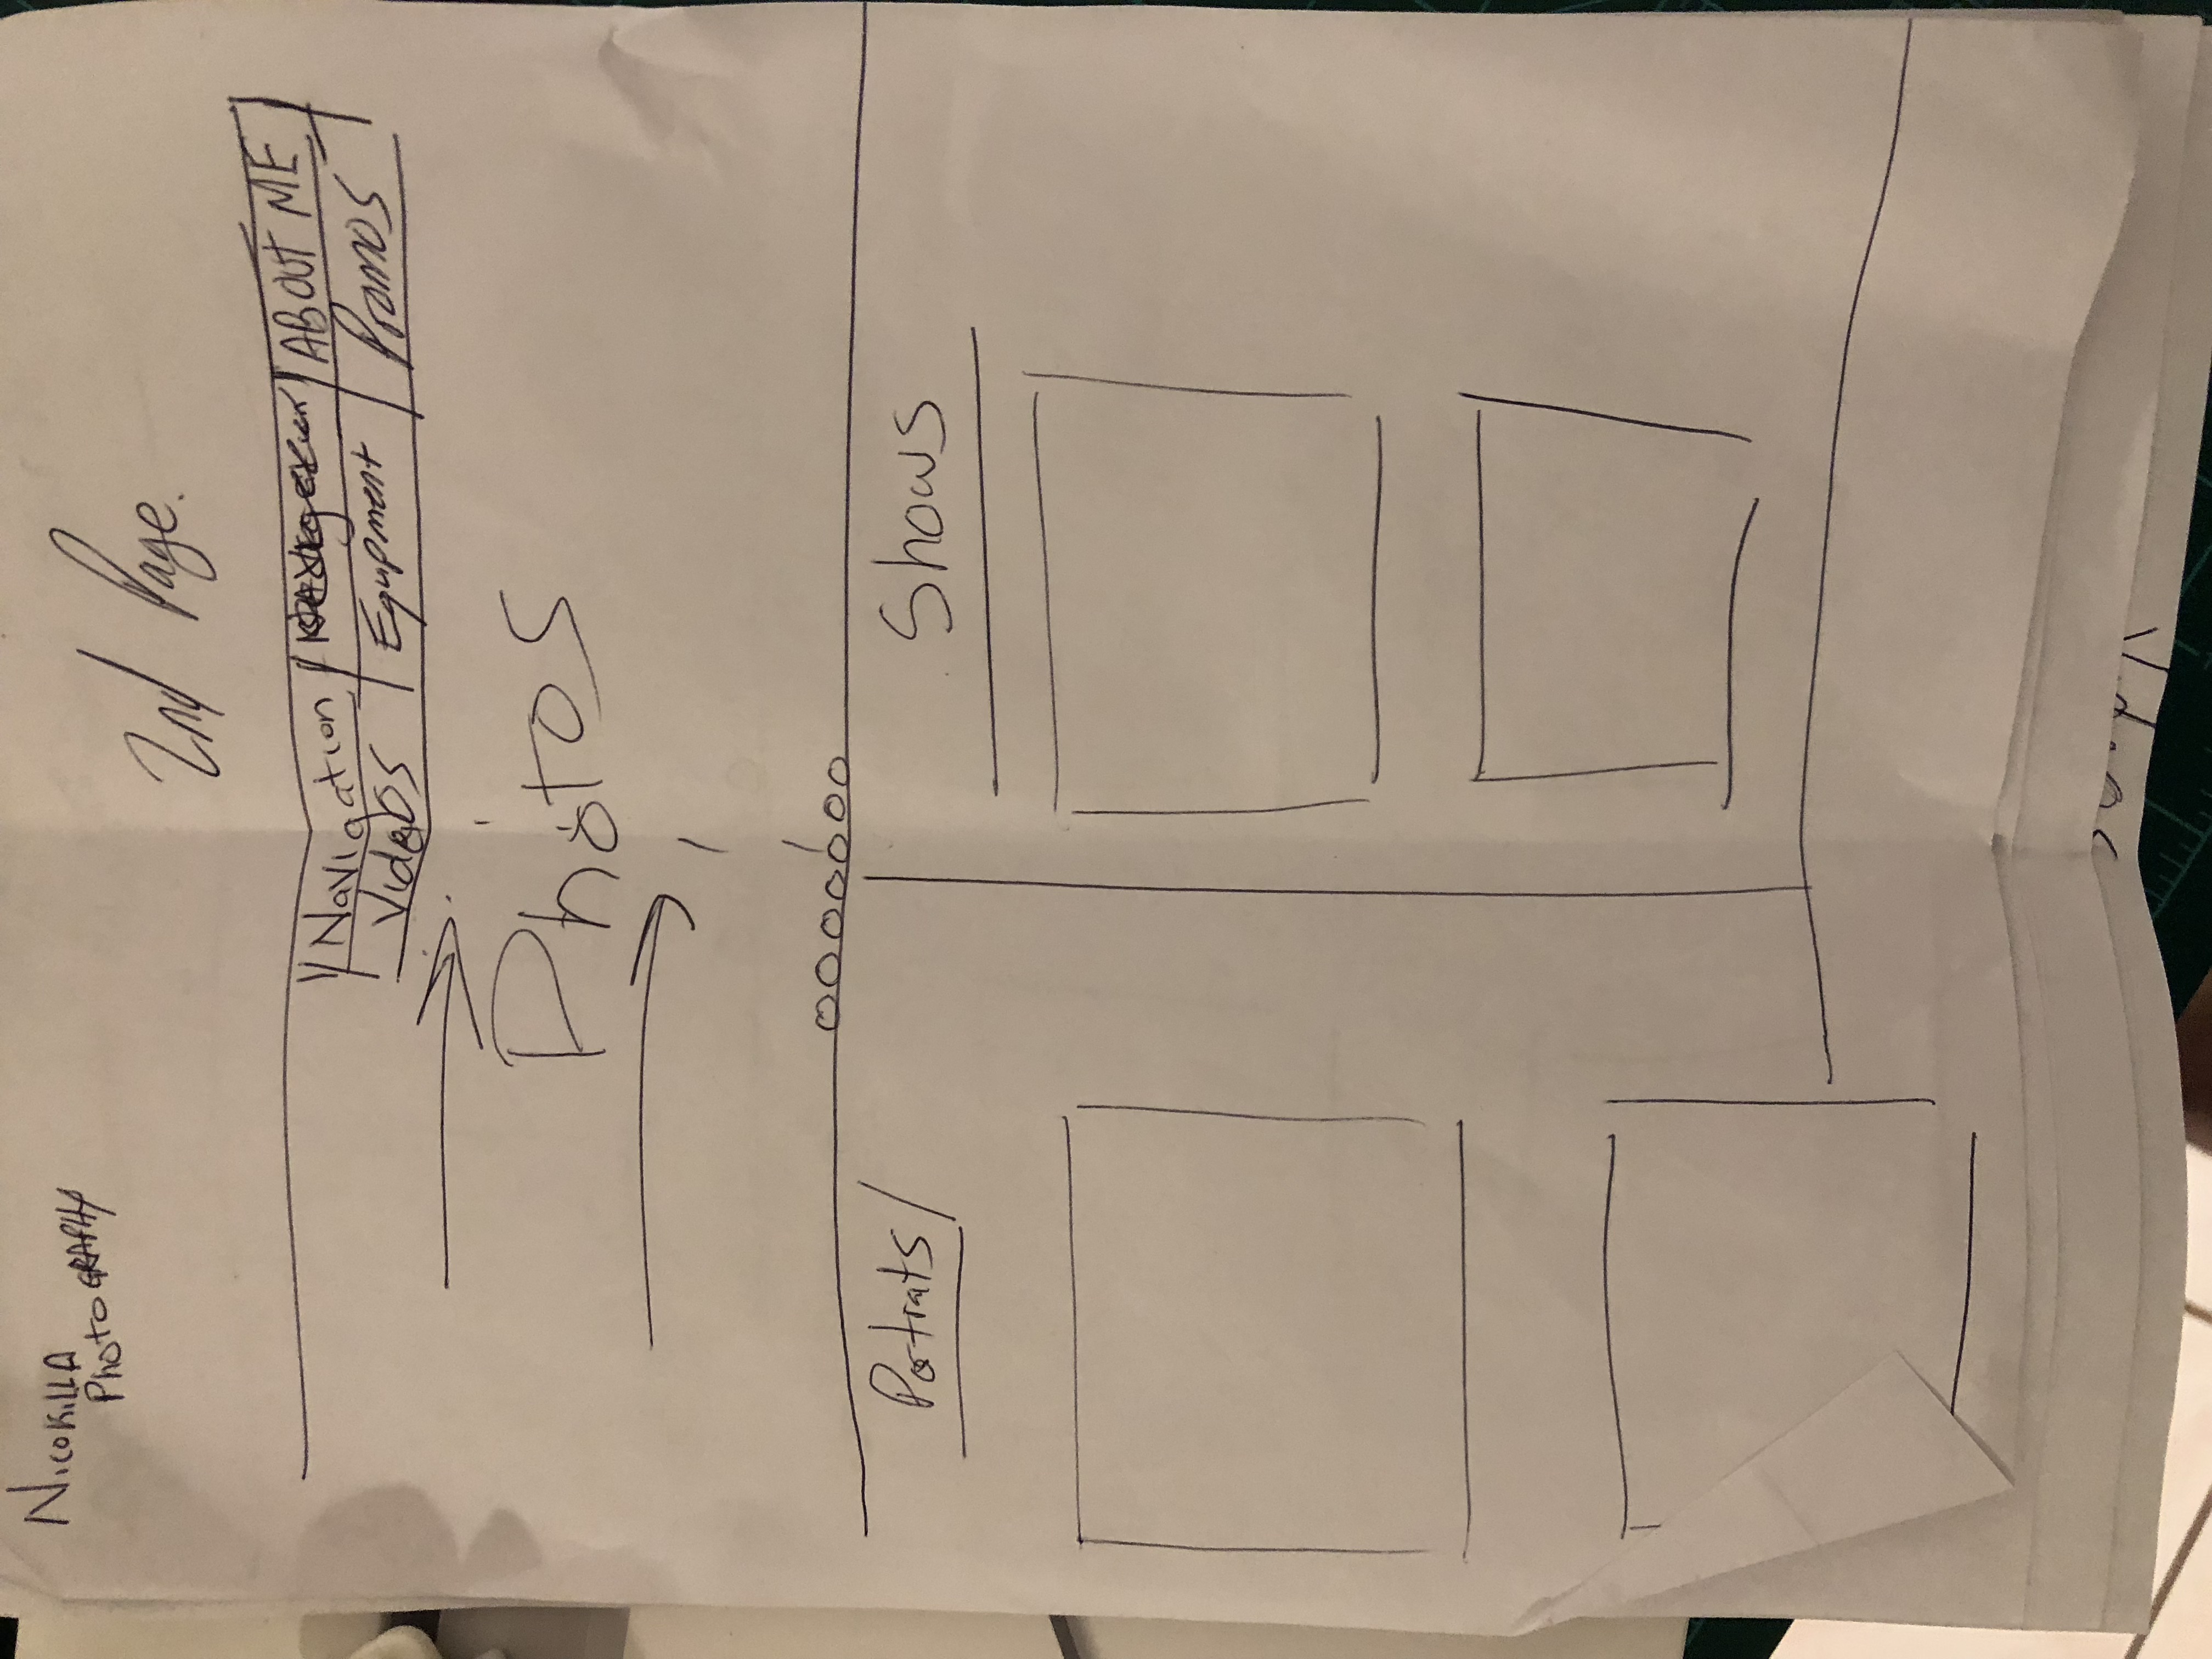 NicoKillA
PhotoGRAPHY
2nd Page.
Navigation | | ABOUT ME
VidEOS | Equpment | Promos
Photos
Portrats/
Shows